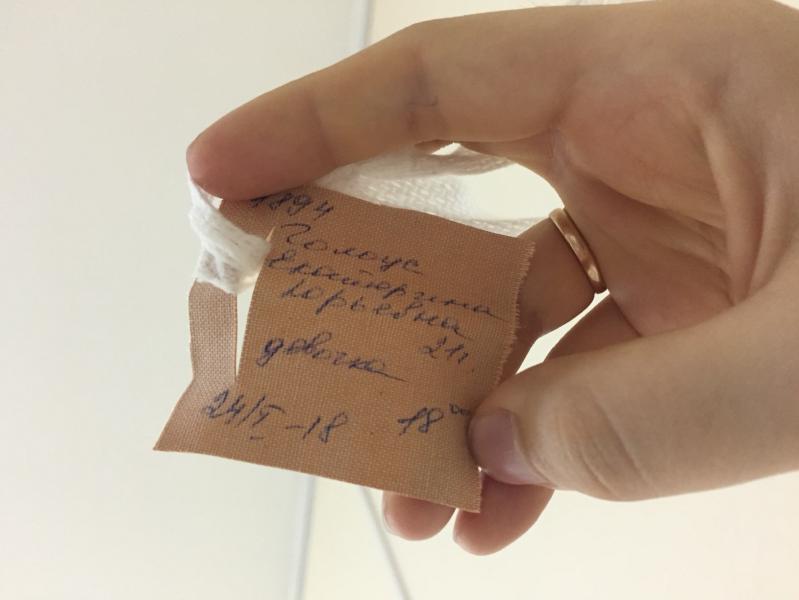 1894
Голоус
Екатерина
Юрьевна
21г.
девочка
24/V-18 18⁰⁰